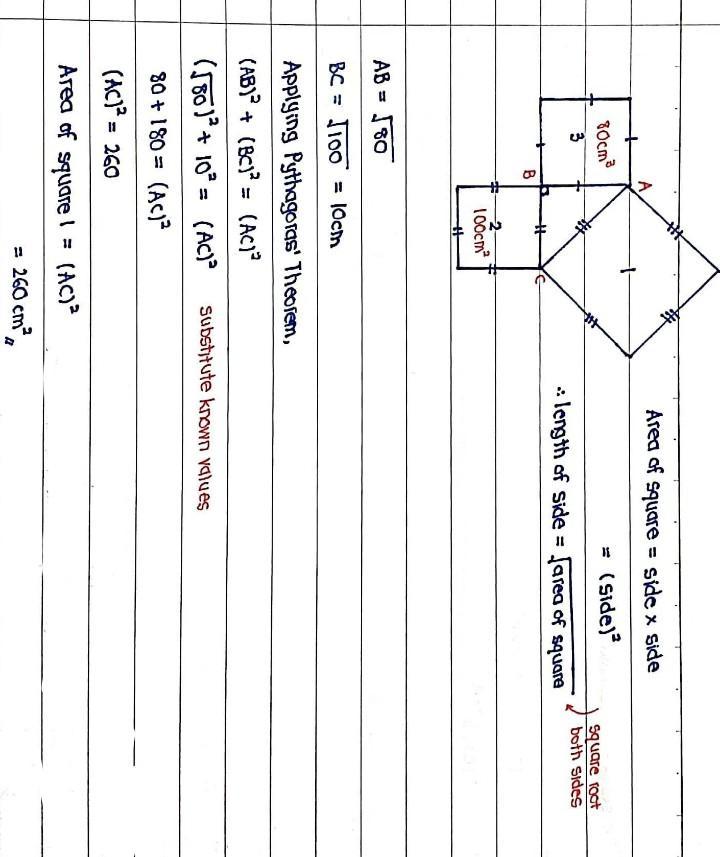 A
80cm²
3
B
1
2
100cm²
C
Area of square = side x side
= (side)²
∴ length of side = √area of square
square root
both sides
AB = √80
BC = √100 = 10cm
Applying Pythagoras' Theorem,
(AB)² + (BC)² = (AC)²
(√80)² + 10² = (AC)² substitute known values
80 + 180 = (AC)²
(AC)² = 260
Area of square 1 = (AC)²
= 260 cm²〃